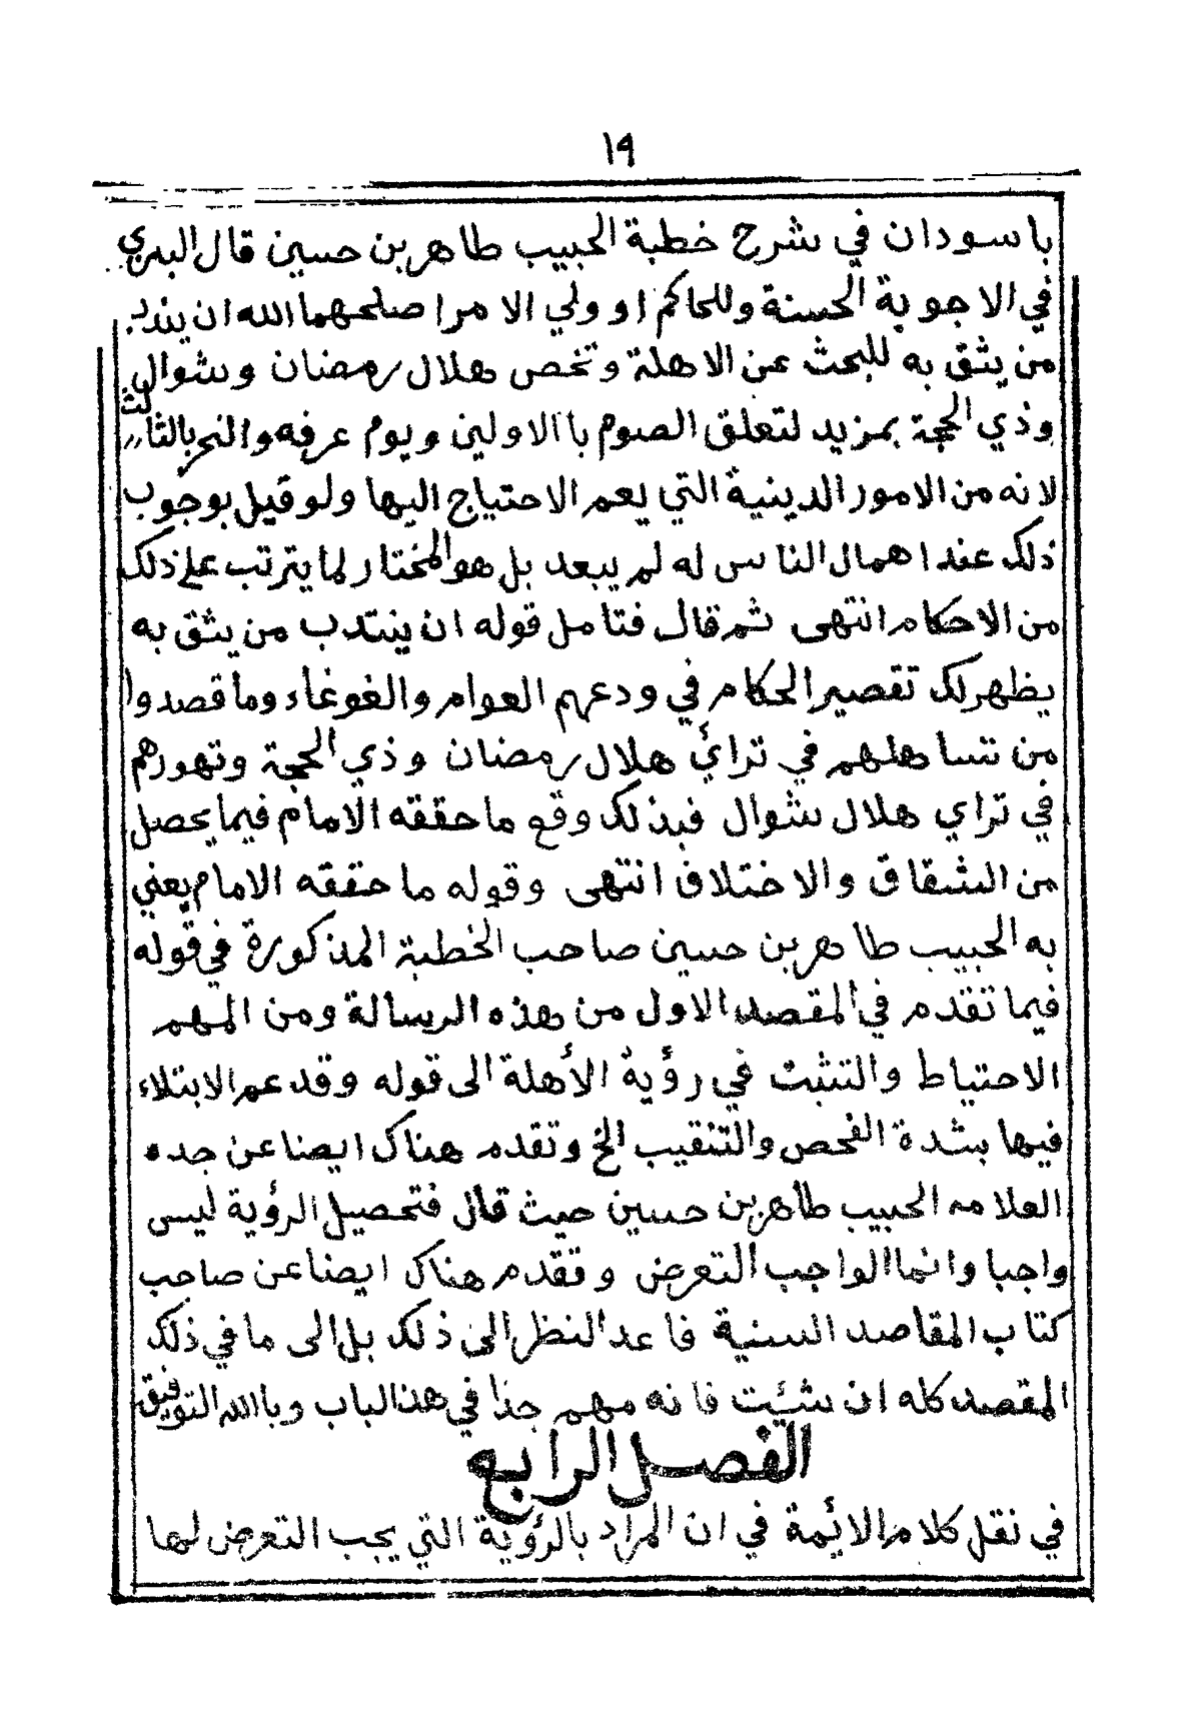 ١٩
باسودان في شرح خطبة الحبيب طاهر بن حسين قال البدري
في الاجوبة الحسنة وللحاكم او ولي الامر اصلحهما الله ان يندب
من يثق به للبحث عن الاهلة وتخص هلال رمضان وشوال
وذي الحجة بمزيد لتعلق الصوم باالاولين ويوم عرفه والنحر بالثالث
لانه من الامور الدينية التي يعم الاحتياج اليها ولو قيل بوجوب
ذلك عند اهمال الناس له لم يبعد بل هو المختار لما يترتب على ذلك
من الاحكام انتهى ثم قال فتامل قوله ان ينتدب من يثق به
يظهر لك تقصير الحكام في ودعهم العوام والغوغاء وما قصدوا
من تساهلهم في ترائي هلال رمضان وذي الحجة وتهورهم
في تراي هلال شوال فبذلك وقع ما حققه الامام فيما يحصل
من الشقاق والاختلاف انتهى وقوله ما حققه الامام يعني
به الحبيب طاهر بن حسين صاحب الخطبة المذكورة في قوله
فيما تقدم في المقصد الاول من هذه الرسالة ومن المهم
الاحتياط والتثبت في رؤية الأهلة الى قوله وقد عم الابتلاء
فيها بشدة الفحص والتنقيب الخ وتقدم هناك ايضا عن جده
العلامه الحبيب طاهر بن حسين حيث قال فتحصيل الرؤية ليس
واجبا وانما الواجب التعرض وتقدم هناك ايضا عن صاحب
كتاب المقاصد السنية فاعد النظر الى ذلك بل الى ما في ذلك
المقصد كله ان شئت فانه مهم جدا في هذا الباب وبالله التوفيق
الفصل الرابع
في نقل كلام الائمة في ان المراد بالرؤية التي يجب التعرض لها